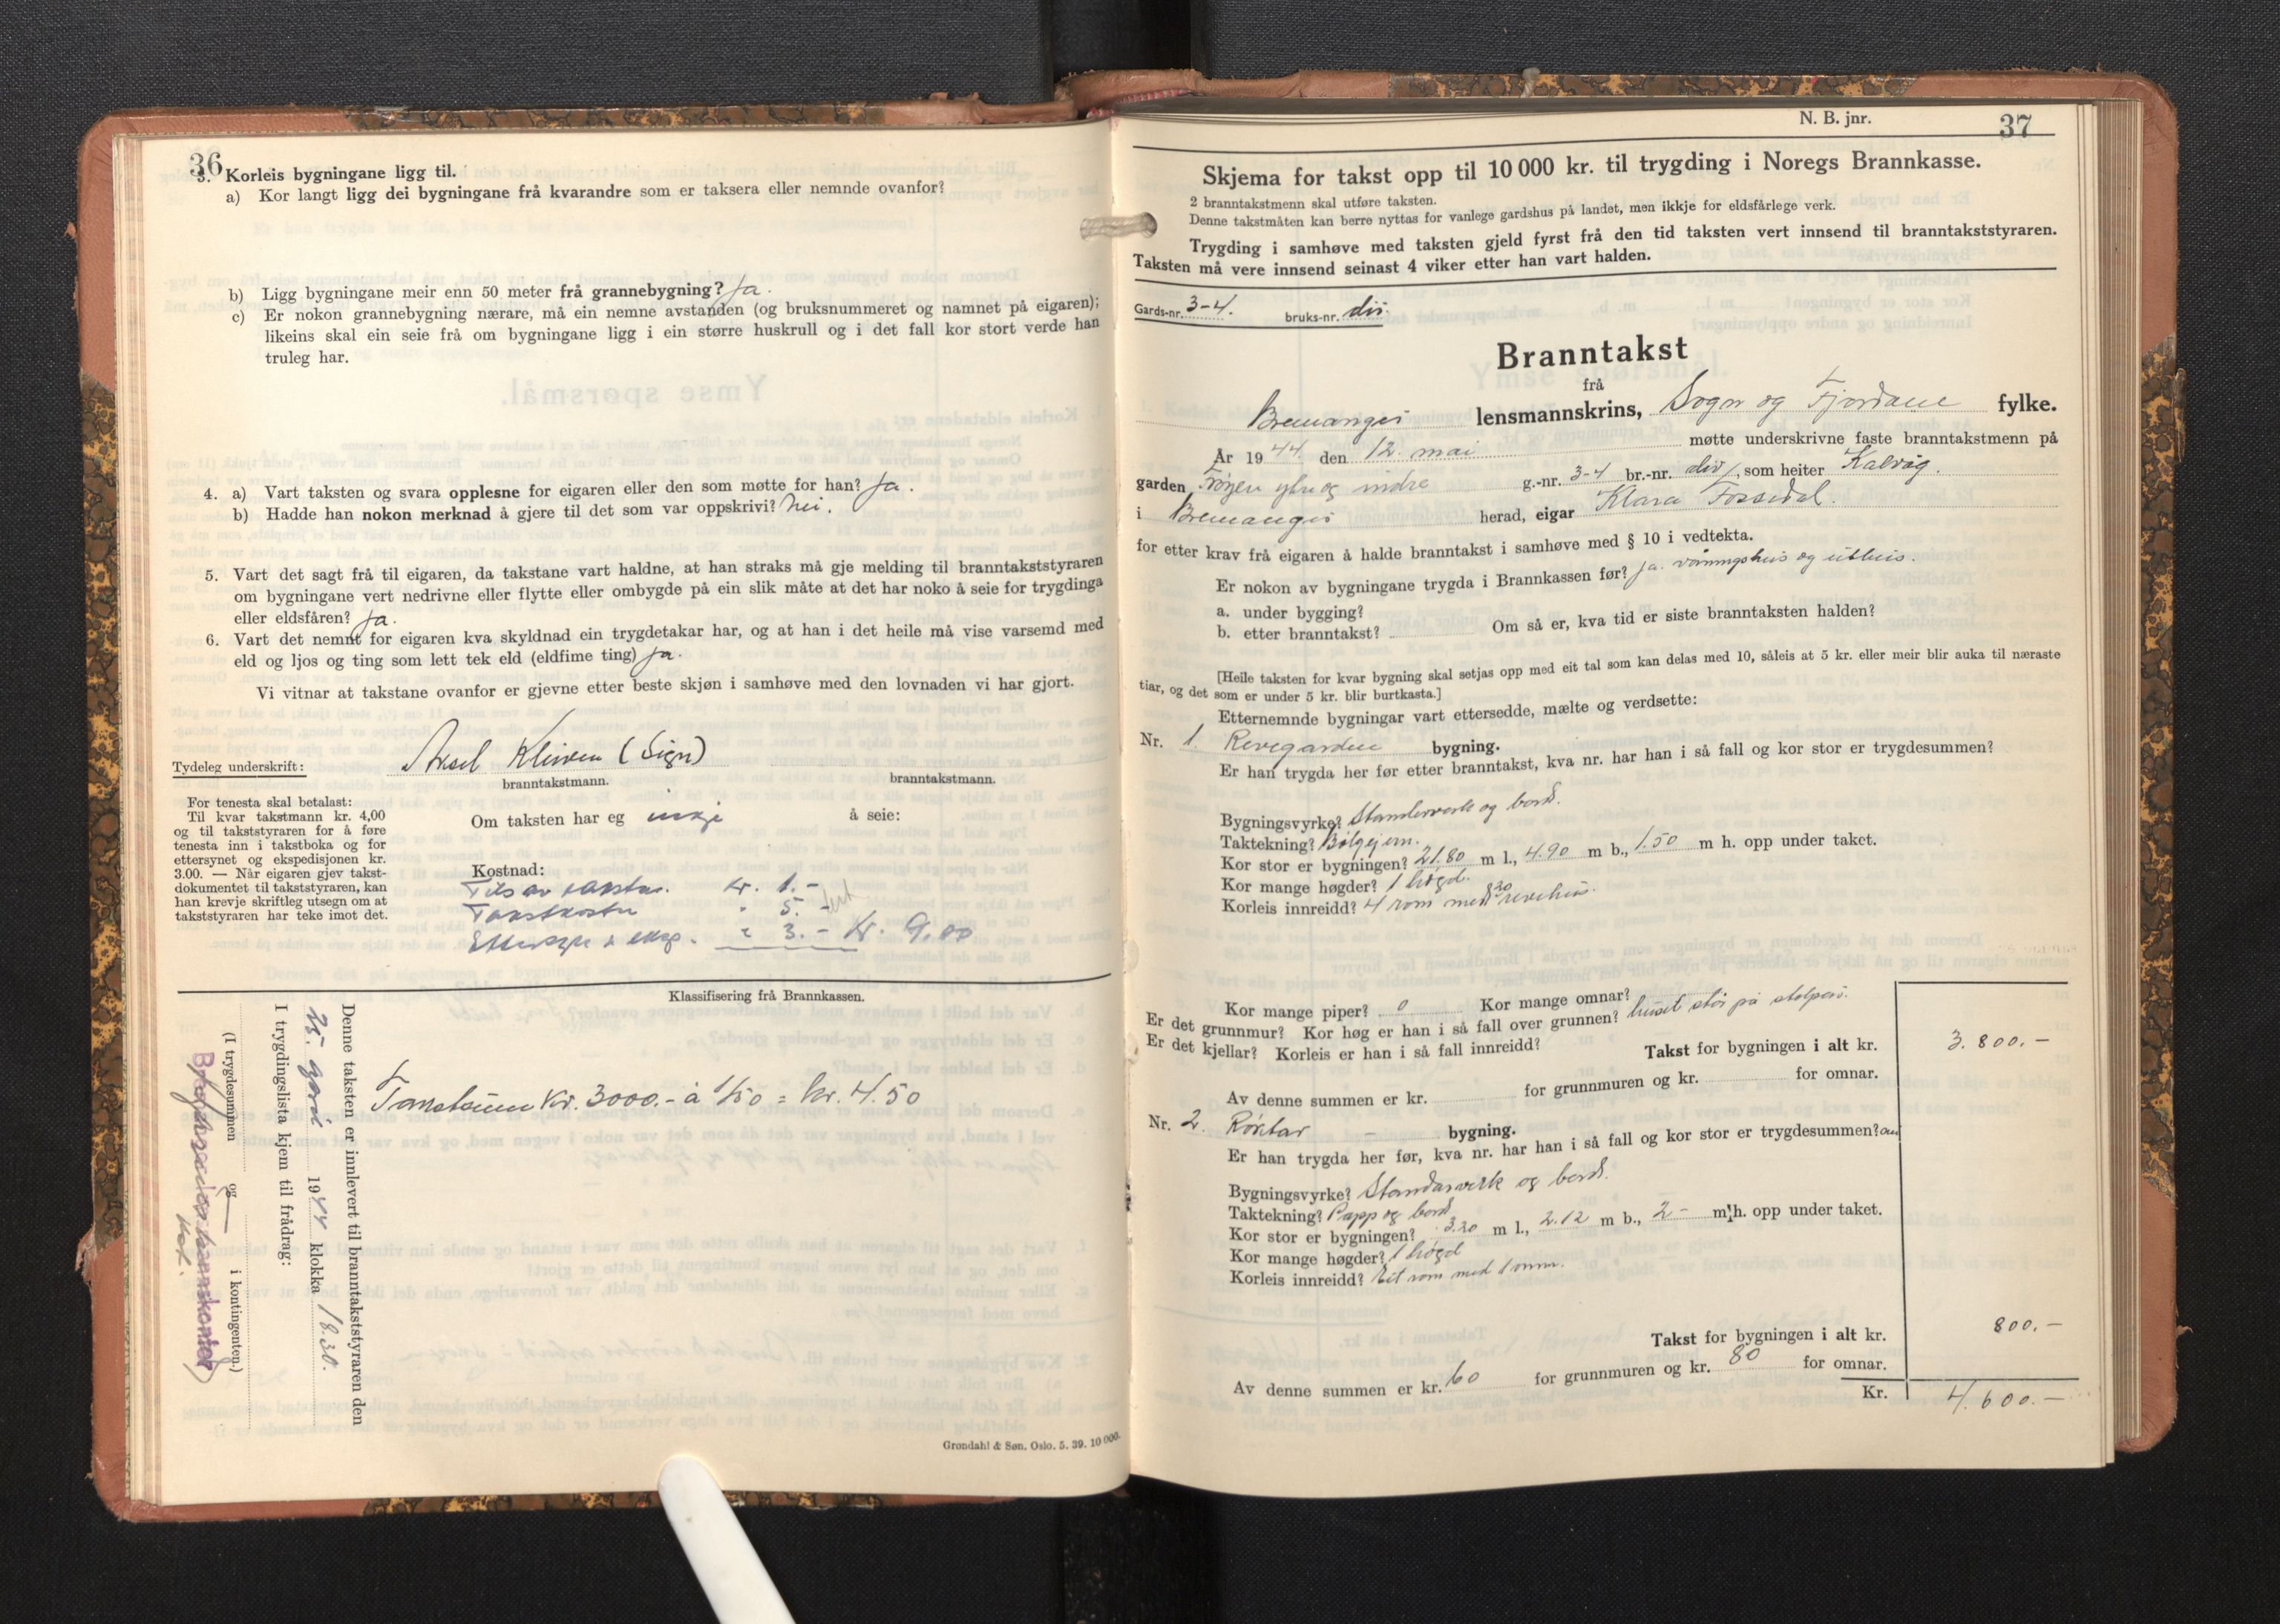 36
3. Korleis bygningane ligg til.
a) Kor langt ligg dei bygningane frå kvarandre som er taksera eller nemnde ovanfor?
b) Ligg bygningane meir enn 50 meter frå grannebygning? Ja.
c) Er nokon grannebygning nærare, må ein nemne avstanden (og bruksnummeret og namnet på eigaren);
likeins skal ein seie frå om bygningane ligg i ein større huskrull og i det fall kor stort verde han
truleg har.
4. a) Vart taksten og svara opplesne for eigaren eller den som møtte for han? Ja.
b) Hadde han nokon merknad å gjere til det som var oppskrivi? Nei.
5. Vart det sagt frå til eigaren, da takstane vart haldne, at han straks må gje melding til branntakststyraren
om bygningane vert nedrivne eller flytte eller ombygde på ein slik måte at det har noko å seie for trygdinga
eller eldsfåren? Ja.
6. Vart det nemnt for eigaren kva skyldnad ein trygdetakar har, og at han i det heile må vise varsemd med
eld og ljos og ting som lett tek eld (eldfime ting) Ja.
Vi vitnar at takstane ovanfor er gjevne etter beste skjøn i samhøve med den lovnaden vi har gjort.
Tydeleg underskrift: Aksel Kliven (Sign)
branntakstmann. branntakstmann.
For tenesta skal betalast:
Til kvar takstmann kr. 4,00
og til takststyraren for å føre
tenesta inn i takstboka og for
ettersynet og ekspedisjonen kr.
3.00. — Når eigaren gjev takst-
dokumentet til takststyraren, kan
han krevje skriftleg utsegn om at
takststyraren har teke imot det.
Om taksten har eg inkje å seie:
Kostnad:
kr. 1.-
" 5.-
" 3.- Kr. 9.00
Klassifisering frå Brannkassen.
Denne taksten er innlevert til branntakststyraren den
25. 1944 klokka 18.30.
I trygdingslista kjem til frådrag:
(I trygdesummen og i kontingenten.)
Kr. 3000.- à 1/50 = kr. 4.50
Grøndahl & Søn, Oslo. 5. 39. 10 000.
N. B. jnr. 37
Skjema for takst opp til 10 000 kr. til trygding i Noregs Brannkasse.
2 branntakstmenn skal utføre taksten.
Denne takstmåten kan berre nyttas for vanlege gardshus på landet, men ikkje for eldsfårlege verk.
Trygding i samhøve med taksten gjeld fyrst frå den tid taksten vert innsend til branntakststyraren.
Taksten må vere innsend seinast 4 viker etter han vart halden.
Gards-nr. 3-4. bruks-nr. div.
Branntakst
frå
Bremanger lensmannskrins, Sogn og Fjordane fylke.
År 1944. den 12. mai møtte underskrivne faste branntakstmenn på
garden Frøyen ytre og indre g.-nr. 3-4 br.-nr. div, som heiter Kalvåg.
i Bremanger herad, eigar Klara Fossedal.
for etter krav frå eigaren å halde branntakst i samhøve med § 10 i vedtekta.
Er nokon av bygningane trygda i Brannkassen før? Ja. våningshus og uthus.
a. under bygging?
b. etter branntakst? Om så er, kva tid er siste branntaksten halden?
[Heile taksten for kvar bygning skal setjas opp med eit tal som kan delas med 10, såleis at 5 kr. eller meir blir auka til næraste
tiar, og det som er under 5 kr. blir burtkasta.]
Etternemnde bygningar vart ettersedde, mælte og verdsette:
Nr. 1. Revegarden bygning.
Er han trygda her før etter branntakst, kva nr. har han i så fall og kor stor er trygdesummen?
Bygningsvyrke? Standerverk og bord.
Taktekning? Bølgejern.
Kor stor er bygningen? 21.80 m l., 4.90 m b., 1.50 m h. opp under taket.
Kor mange høgder? 1 høgd.
Korleis innreidd? 4 rom med revehus.
Kor mange piper? 0 Kor mange omnar?
Er det grunnmur? Kor høg er han i så fall over grunnen? huset står på stolpar.
Er det kjellar? Korleis er han i så fall innreidd?
Takst for bygningen i alt kr. 3.800.-
Av denne summen er kr. for grunnmuren og kr. for omnar.
Nr. 2. Røktar - bygning.
Er han trygda her før, kva nr. har han i så fall og kor stor er trygdesummen?
Bygningsvyrke? Standarverk og bord.
Taktekning? Papp og bord
Kor stor er bygningen? 3.20 m l., 2.12 m b., 2- m h. opp under taket.
Kor mange høgder? 1 høgd
Korleis innreidd? Eit rom med 1 omn.
Takst for bygningen i alt kr. 800.-
Av denne summen er kr. 60 for grunnmuren og kr. 80 for omnar.
Kr. 4.600.-